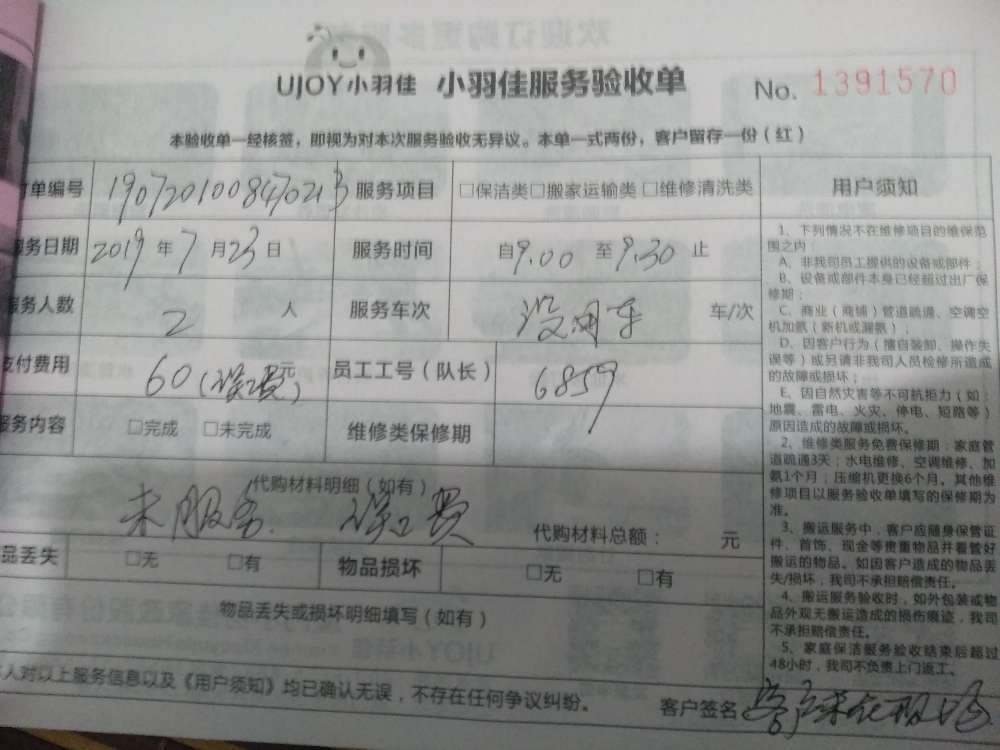 UJOY小羽佳 小羽佳服务验收单 No. 1391570
本验收单一经核签，即视为对本次服务验收无异议。本单一式两份，客户留存一份（红）
订单编号 服务项目 □保洁类□搬家运输类□维修清洗类 用户须知
服务日期 2019年7月23日 服务时间 自9.00至9.30止
服务人数 2人 服务车次 没用车 车/次
支付费用 60（误工费）元 员工工号（队长） 6859
服务内容 □完成 □未完成 维修类保修期
代购材料明细（如有）
未服务. 误工费 代购材料总额： 元
品丢失 □无 □有 物品损坏 □无 □有
物品丢失或损坏明细填写（如有）
本人对以上服务信息以及《用户须知》均已确认无误，不存在任何争议纠纷。
客户签名 客户未在现场
1、下列情况不在维修项目的维保范
围之内：
A、非我司员工提供的设备或部件；
B、设备或部件本身已经超过出厂保
修期；
C、商业（商铺）管道疏通、空调空
机加氨（新机或漏氨）；
D、因客户行为（擅自装卸、操作失
误等）或另请非我司人员检修所造成
的故障或损坏；
E、因自然灾害等不可抗拒力（如：
地震、雷电、火灾、停电、短路等）
原因造成的故障或损坏。
2、维修类服务免费保修期：家庭管
道疏通3天；水电维修、空调维修、加
氨1个月；压缩机更换6个月。其他维
修项目以服务验收单填写的保修期为
准。
3、搬运服务中，客户应随身保管证
件、首饰、现金等贵重物品并看管好
搬运的物品。如因客户造成的物品丢
失/损坏，我司不承担赔偿责任。
4、搬运服务验收时，如外包装或物
品外观无搬运造成的损伤痕迹，我司
不承担赔偿责任。
5、家庭保洁服务验收结束后超过
48小时，我司不负责上门返工。